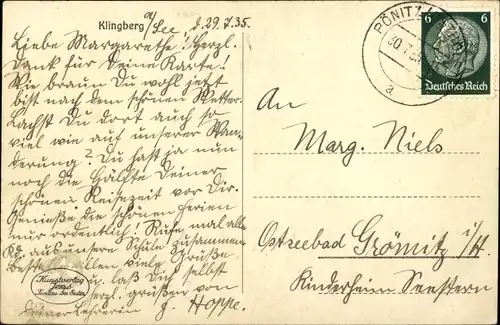 Klingberg a/See, d. 29.7.35.
Liebe Margarethe! Herzl.
Dank für Deine Karte!
Wie braun Du wohl jetzt
bist nach dem schönen Wetter.
Lachst Du dort auch so
viel wie auf unserer Wan-
derung? Du hast ja nun
noch die Hälfte Deiner
schönen Reisezeit vor Dir.
Genieße die schönen Ferien
nur ordentlich! Rufe mal alle
Kd. aus unsere Schule zusammen.
Beste allen viele Grüße
u. laß Dich selbst
herzl. grüßen von
Deiner Lehrerin J. Hoppe.
Kunstverlag
bei Eutin
PÖNITZ
30.7.35
a
6 6
Deutsches Reich
An
Marg. Niels
Ostseebad Grömitz i/H.
Kinderheim Seestern